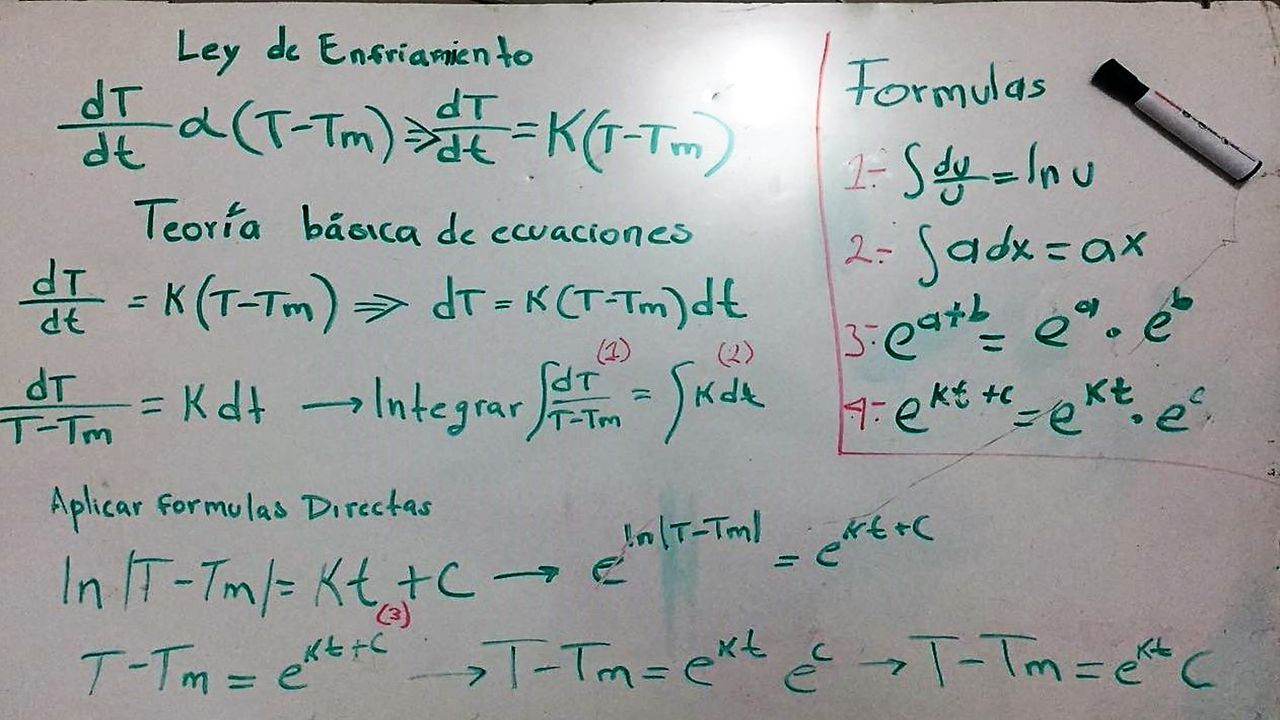 Ley de Enfriamiento
dT/dt α (T-Tm) ⇒ dT/dt = K(T-Tm)
Teoría básica de ecuaciones
dT/dt = K(T-Tm) ⇒ dT = K(T-Tm)dt
dT/T-Tm = K dt → Integrar ∫dT/T-Tm (1) = ∫K dt (2)
Aplicar Formulas Directas
ln |T-Tm| = Kt + C → e^ln|T-Tm| = e^Kt+C
(3)
T-Tm = e^Kt+C → T-Tm = e^Kt e^C → T-Tm = e^Kt C
Formulas
1- ∫du/u = ln u
2- ∫a dx = ax
3- e^a+b = e^a · e^b
4- e^Kt+c = e^Kt · e^c